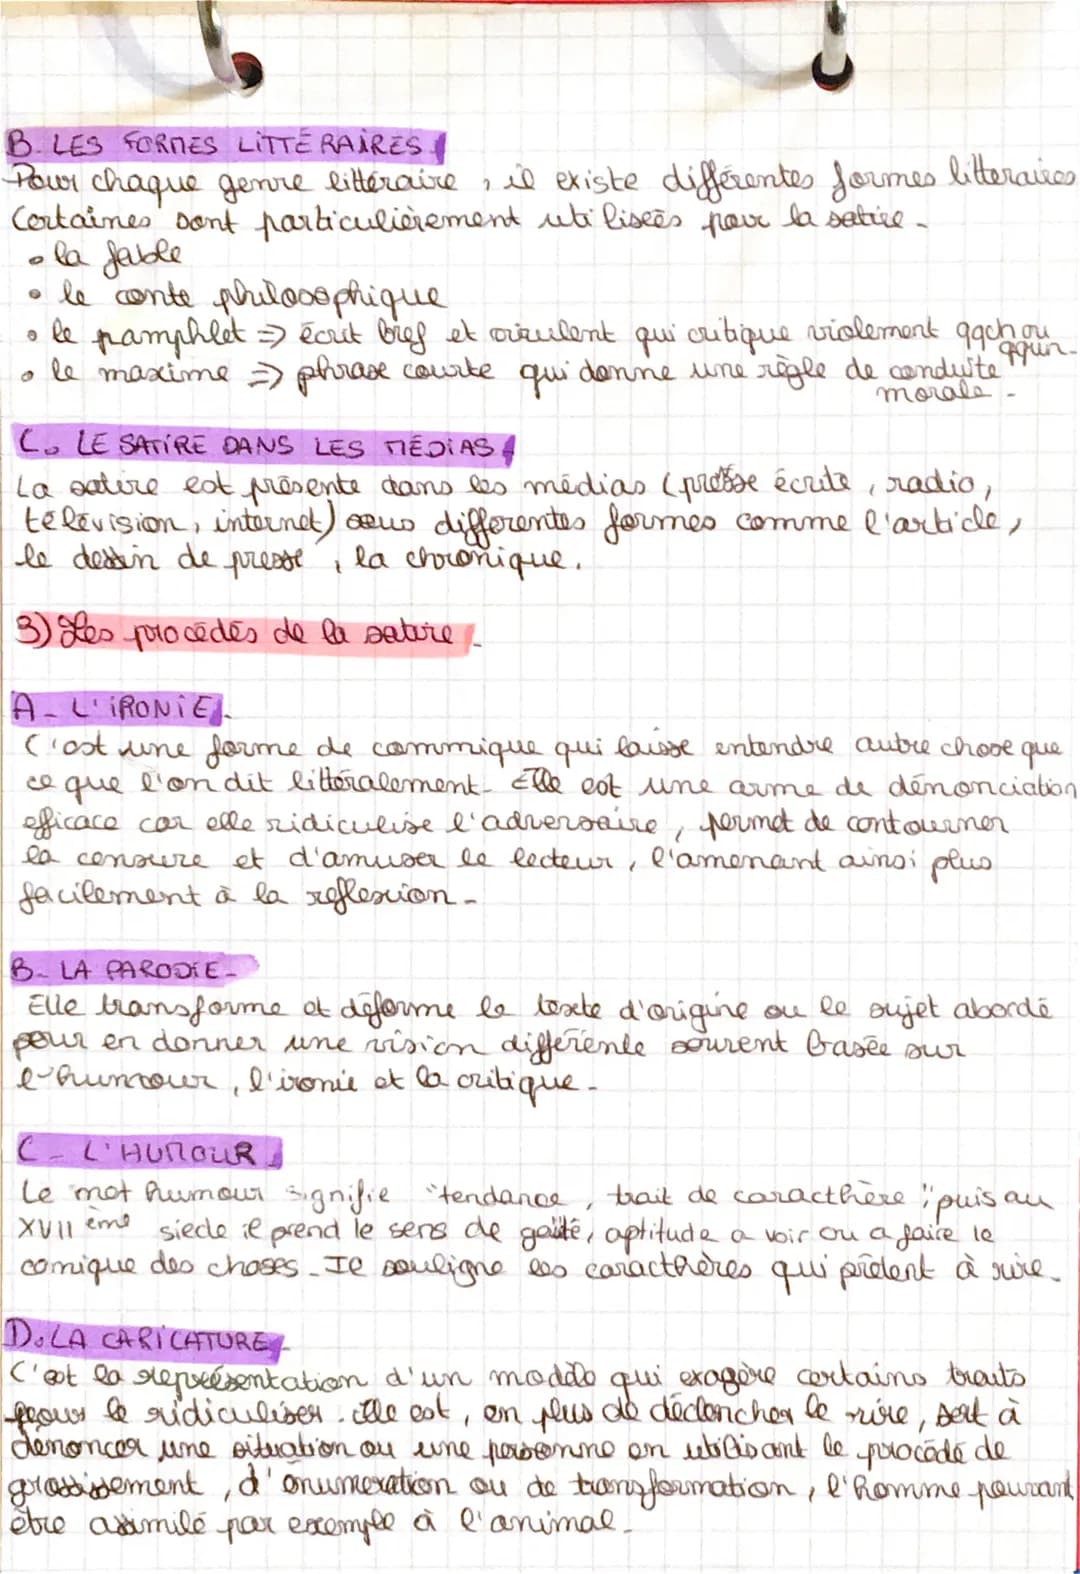 B. LES FORMES LITTÉRAIRES.
Pour chaque genre littéraire, il existe différentes formes litteraires
Certaines sont particulièrement utilisées pour la satire.
• la fable
• le conte philosophique
• le pamphlet => écrit bref et virulent qui critique violement qqch ou qqun.
• le maxime => phrase courte qui donne une règle de conduite
morale.
C. LE SATIRE DANS LES MÉDIAS
La satire est présente dans les médias (presse écrite, radio,
télévision, internet) sous differentes formes comme l'article,
le dessin de presse, la chronique.
3) Les procédés de la satire.
A. L'IRONIE.
C'est une forme de commique qui laisse entendre autre chose que
ce que l'on dit littéralement. Elle est une arme de dénonciation
efficace car elle ridiculise l'adversaire, permet de contourner
la censure et d'amuser le lecteur, l'amenant ainsi plus
facilement à la reflexion.
B. LA PARODIE.
Elle transforme et déforme le texte d'origine ou le sujet abordé
pour en donner une vision différente souvent basée sur
l'humour, l'ironie et la critique.
C. L'HUMOUR.
Le mot humour signifie "tendance, trait de caracthère", puis au
XVII ème siecle il prend le sens de gaité, aptitude a voir ou a faire le
comique des choses. Il souligne les caracthères qui prêtent à rire.
D. LA CARICATURE.
C'est la représentation d'un modèle qui exagère certains traits
pour le ridiculiser. Elle est, en plus de déclencher le rire, sert à
dénoncer une situation ou une personne en utilisant le procédé de
grossissement, d'énumeration ou de transformation, l'homme pouvant
être assimilé par exemple à l'animal.